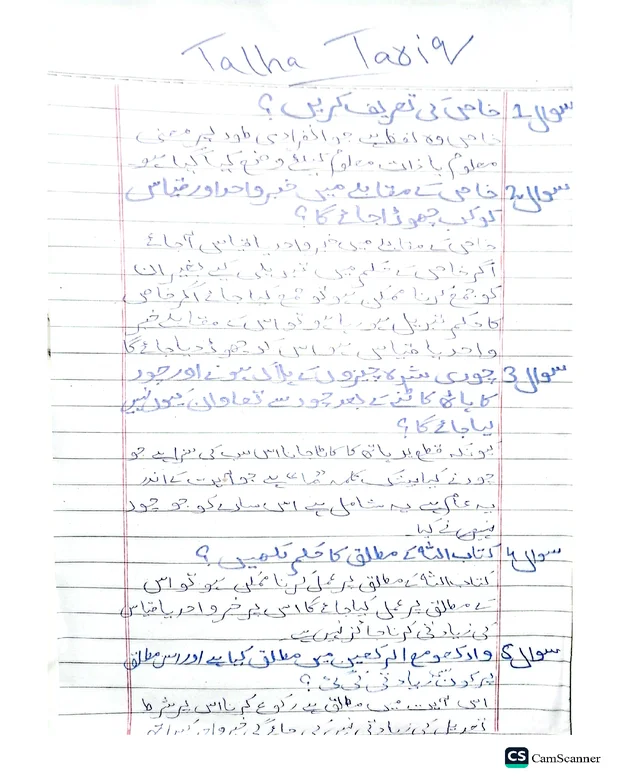 Talha Tariq
سوال 1 خاص کی تعریف کریں؟
خاص وہ لفظ ہے جو انفرادی طور پر معنی
معلوم یا ذات معلوم کیلئے وضع کیا گیا ہو
سوال 2 خاص کے مقابلے میں خبر واحد اور قیاس
کو کب چھوڑا جائے گا؟
خاص کے مقابلے میں خبر واحد یا قیاس آجائے
اگر خاص کے حکم میں تبدیلی کیے بغیر ان
کو جمع کرنا ممکن ہو تو جمع کیا جائے اگر خاص
کا حکم تبدیل ہو رہا ہو تو اس کے مقابلے خبر
واحد یا قیاس ہو اس کو چھوڑ دیا جائے گا
سوال 3 چوری شدہ چیزوں کے ہلاک ہونے اور چور
کا ہاتھ کاٹنے کے بعد چور سے تعاوان کیوں نہیں
لیا جائے گا؟
کیونکہ قطع ید ہاتھ کا کاٹا جانا اس سب کی سزا ہے جو
چور نے کیا بیشک کلمہ "ما" ہے جو آیت کے اندر
یہ عام ہے یہ شامل ہے اس سارے کو جو چور
نے کیا۔
سوال 4 کتاب اللہ کے مطلق کا حکم لکھیں؟
کتاب اللہ کے مطلق پر عمل کرنا ممکن ہو تو اس
کے مطلق پر عمل کیا جائے گا اس پر خبر واحد یا قیاس
کی زیادتی کرنا جائز نہیں ہے۔
سوال 5 وارکعو مع الرکعین میں مطلق کیا ہے اور اس مطلق
پر کونسی زیادتی کی گئی؟
اس آیت میں مطلق ہے رکوع کرنا اس پر شرط
کی زیادتی نہیں کی جائے گی خبر واحد
CS CamScanner